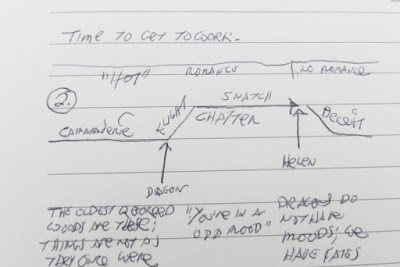 TIME TO GET TO WORK.
"HOT" ROMANCE NO ROMANCE
2.
SNATCH
CAMARADERIE FLIGHT CHATTER DECEIT
DRAGON HELEN
THE OLDEST RECORDED "YOU'RE IN A DRAGONS DO
WORDS ARE THESE; ODD MOOD" NOT HAVE
THINGS ARE NOT AS MOODS; WE
THEY ONCE WERE HAVE FATES